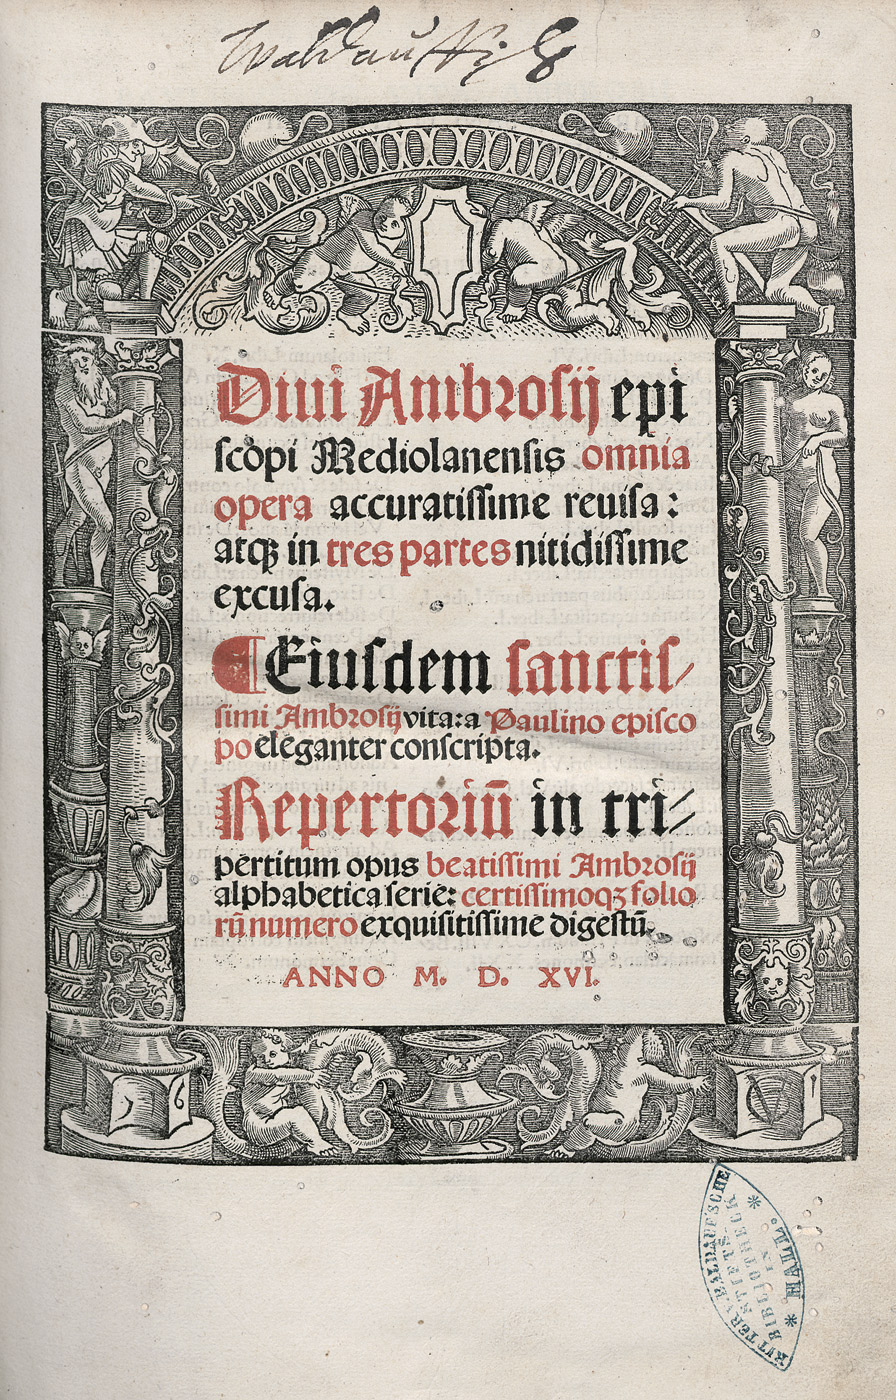 Diui Ambrosij epi
scopi Mediolanensis omnia
opera accuratissime reuisa:
atqꝫ in tres partes nitidissime
excusa.
¶ Eiusdem sanctis⸗
simi Ambrosij vita: a Paulino episco
po eleganter conscripta.
Repertoriū in tri⸗
pertitum opus beatissimi Ambrosij
alphabetica serie: certissimoqꝫ folio
rū numero exquisitissime digestū.
ANNO M. D. XVI.
RITTER v. WALDAUF'SCHE
STIFTS
BIBLIOTHECK
IN
* HALL. *